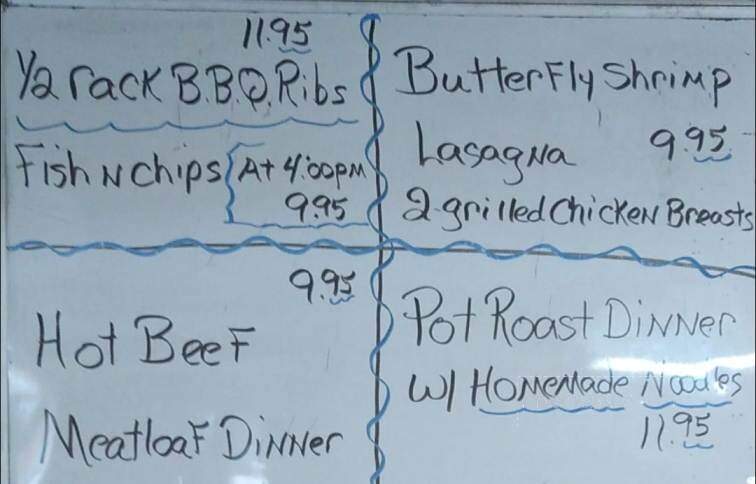 11.95
1/2 rack B.B.Q. Ribs
Fish N Chips At 4:00pm
9.95
Butterfly Shrimp
Lasagna 9.95
2-grilled Chicken Breasts
9.95
Hot Beef
Meatloaf Dinner
Pot Roast Dinner
W/ Homemade Noodles
11.95